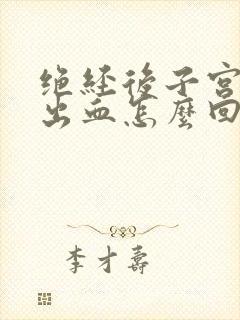 绝经後子宫
出血怎麼回
李才壽